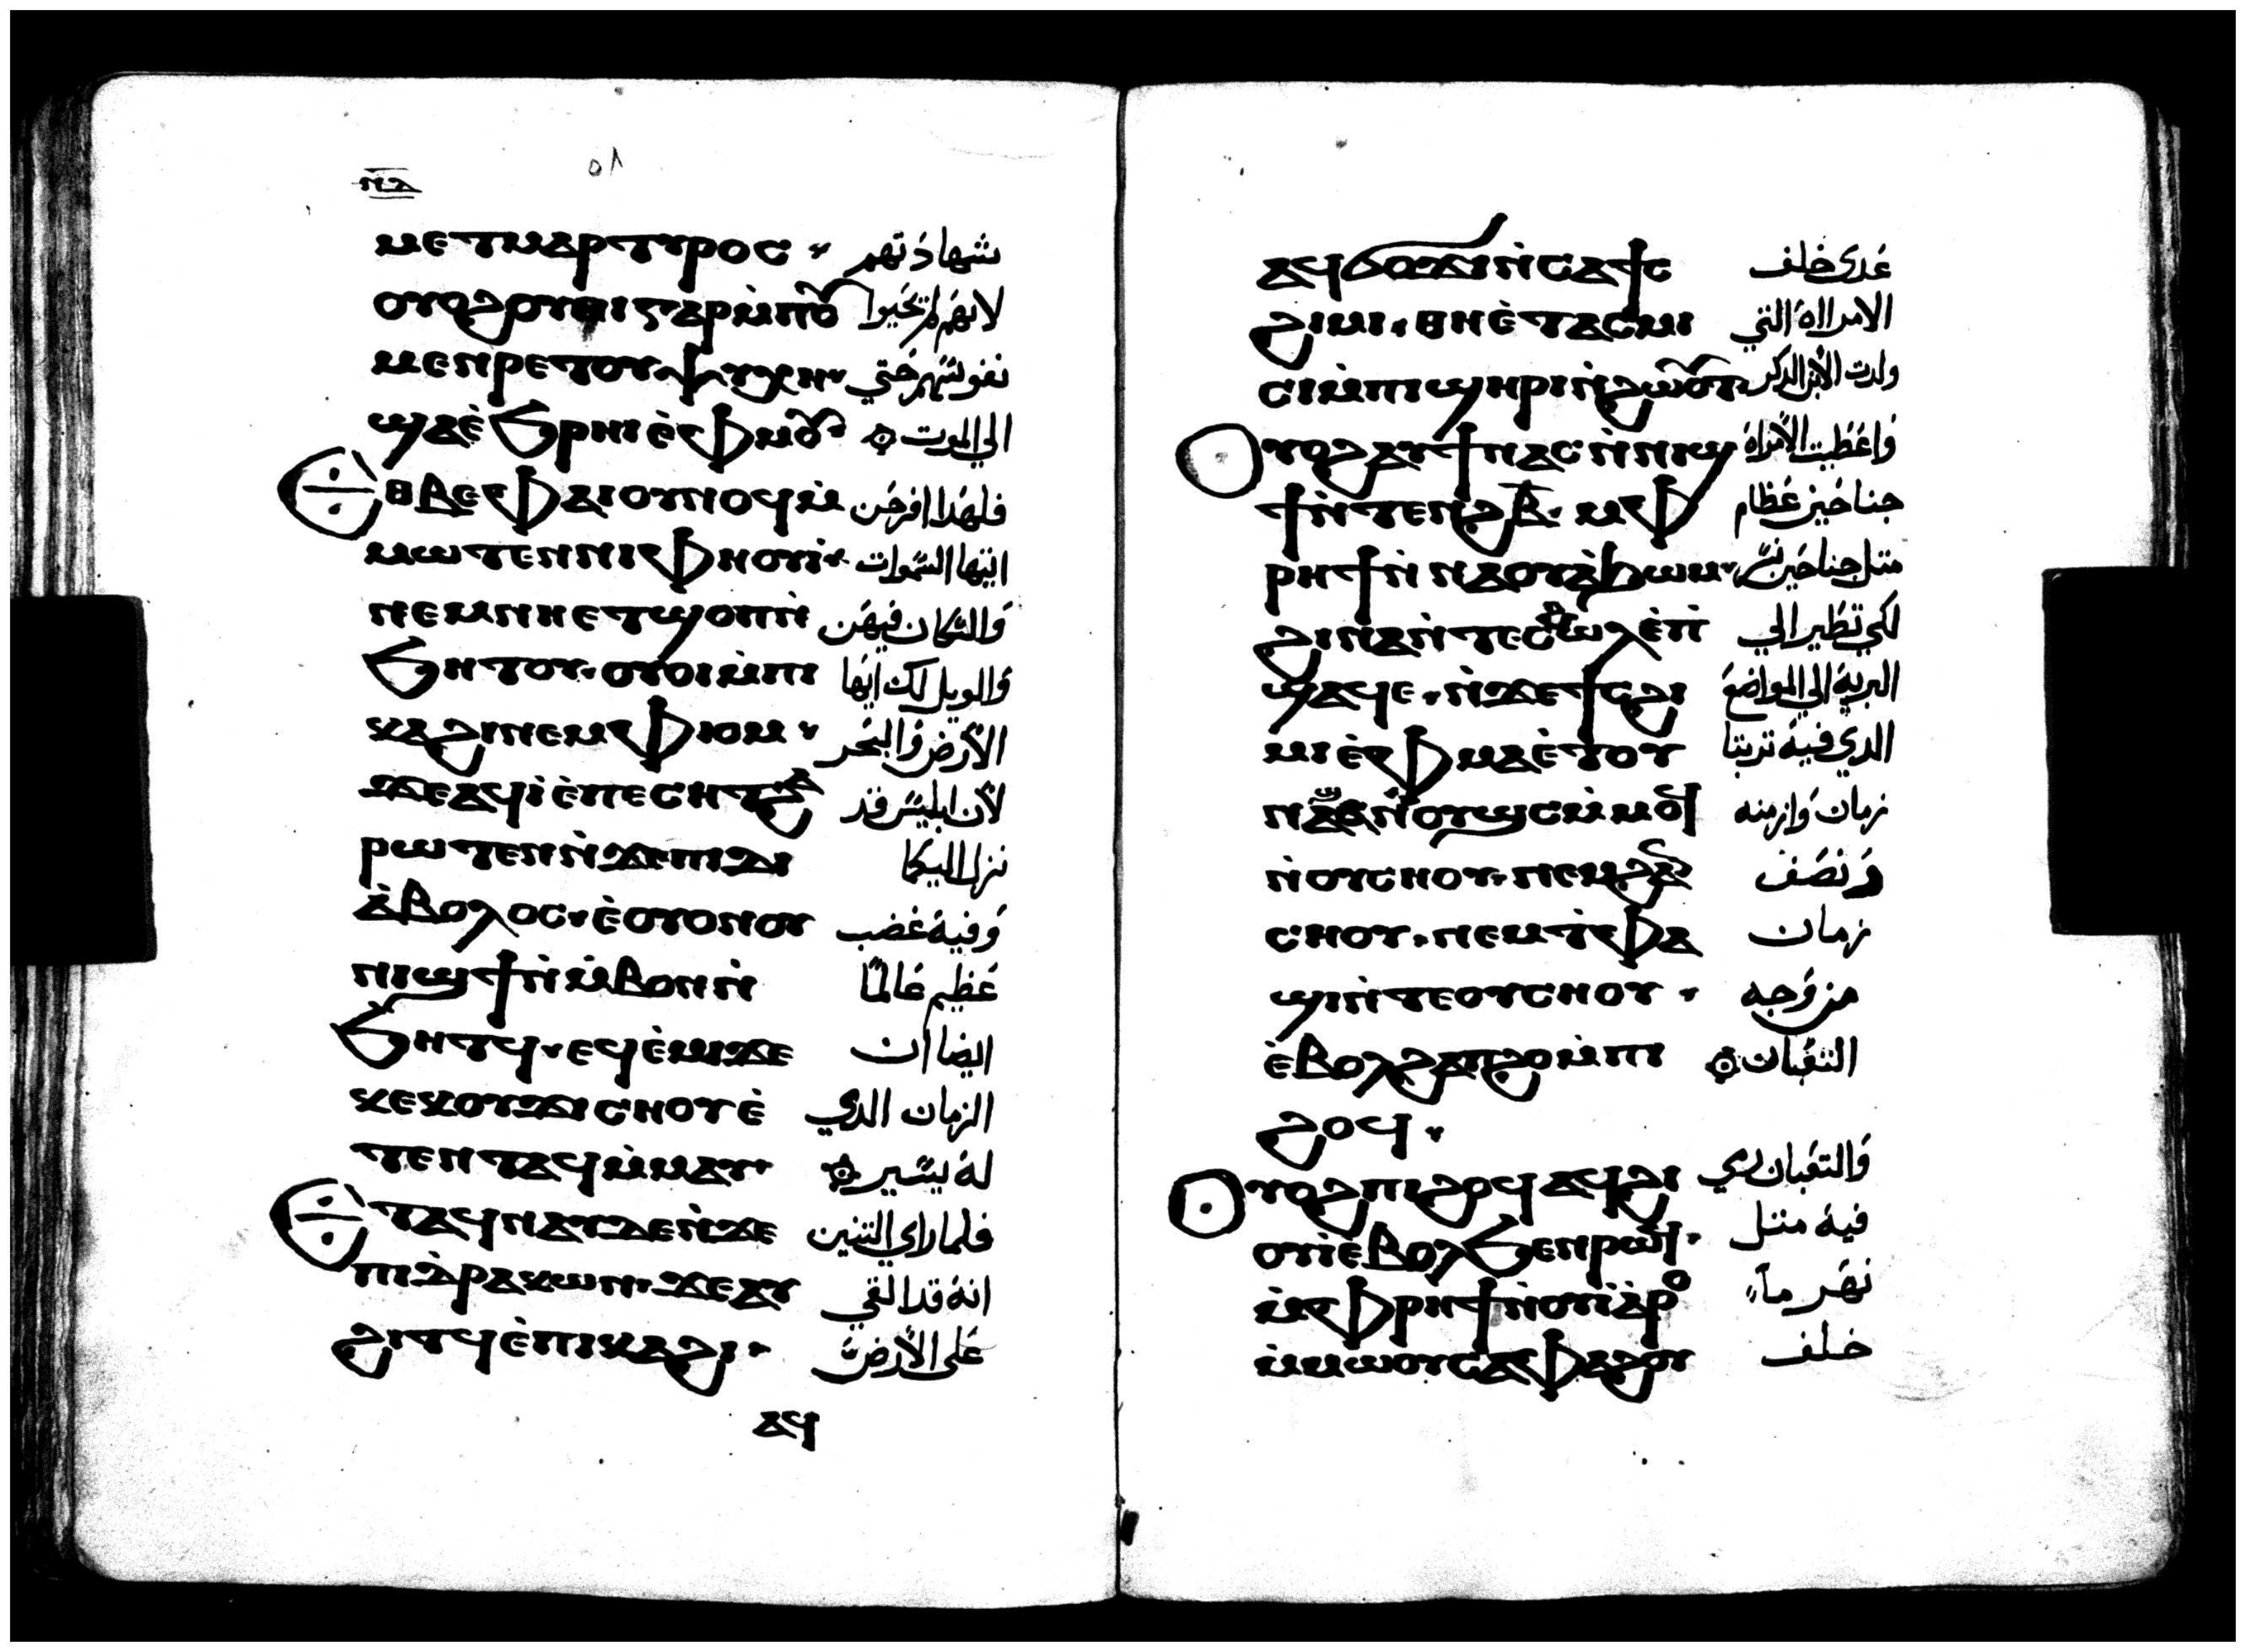 ٥٨
ⲙⲉⲧⲙⲁⲣⲧⲩⲣⲟⲥ شهادتهم
ⲟⲩⲟϩ ⲟⲩ ⲙⲡⲟⲩ لانهم لم يحبوا
ⲙⲉⲛⲣⲉ ⲧⲟⲩⲯⲩⲭⲏ نفوسهم حتي
ϣⲁ ⲉ̀ϧⲣⲏⲓ ⲉ̀ⲫⲙⲟⲩ الي الموت
ⲉⲑⲃⲉ ⲫⲁⲓ ⲟⲩⲛⲟϥ ⲙ̀ فلهدا افرحن
ⲙⲱⲧⲉⲛ ⲛⲓⲫⲏⲟⲩⲓ̀ ايتها السموات
ⲛⲉⲙ ⲛⲏⲉⲧϣⲟⲡ ⲛ̀ والسكان فيهن
ϧⲏⲧⲟⲩ ⲟⲩⲟⲓ ⲙ̀ⲡⲓ والويل لك ايها
ⲕⲁϩⲓ ⲛⲉⲙ ⲫⲓⲟⲙ الارض والبحر
ϫⲉ ⲁϥⲓ̀ ⲉ̀ⲡⲉⲥⲏⲧ ϩⲁ لان ابليس قد
ⲣⲱⲧⲉⲛ ⲛ̀ϫⲉ ⲡⲓⲇⲓ نزل اليكما
ⲁ̀ⲃⲟⲗⲟⲥ ⲉ̀ⲟⲩⲟⲛ ⲟⲩ وفيه غضب
ⲛⲓϣϯ ⲛ̀ⲙ̀ⲃⲟⲛ ⲛ̀ عظيم عالمًا
ϧⲏⲧϥ ⲉϥⲉ̀ⲙⲓ ϫⲉ ايضا ان
ⲕⲉⲕⲟⲩϫⲓ ⲥⲏⲟⲩ ⲉ̀ الزمان الدي
ⲧⲉⲛⲧⲁϥ ⲙ̀ⲙⲁⲩ له يسير
ⲉⲧⲁϥⲛⲁⲩ ⲇⲉ ⲛ̀ϫⲉ فلما راي التنين
ⲡⲓⲇ̀ⲣⲁⲕⲱⲛ ϫⲉ ⲁⲩ انه قد القي
ϩⲓⲧϥ ⲉ̀ⲡⲓⲕⲁϩⲓ علي الارض
ⲁϥ
ⲁϥϭⲟϫⲓ ⲛ̀ⲥⲁ ϯⲥ عدي خلف
ϩⲓⲙⲓ ⲑⲏⲉ̀ⲧⲁⲥⲙⲓ الامراة التي
ⲥⲓ ⲙ̀ⲡⲓϣⲏⲣⲓ ⲛ̀ϩⲱⲟⲩⲧ ولدت الابن الدكر
ⲟⲩⲟϩ ⲁⲩϯ ⲛⲁⲥ ⲛ̀ⲛⲓϣ واعطيت الامراة
ϯ ⲛ̀ⲧⲉⲛϩ ⲃ̅ ⲙ̀ⲫ جناحين عظام
ⲣⲏϯ ⲛ̀ⲛⲁ ⲟⲩⲁ̀ϧⲱⲙ متل جناحين نسر
ϩⲓⲛⲁ ⲛ̀ⲧⲉⲥϩⲱⲗ ⲉ̀ⲡ̀ لكي تطير الي
ϣⲁϥⲉ ⲛ̀ϫⲉ ϯⲥϩⲓ البرية الي المواضع
ⲙⲓ ⲉ̀ⲫⲙⲁ ⲉ̀ⲧⲟⲩ الدي فيه تربتا
ⲛⲁϣⲁⲛⲟⲩϣⲥ ⲙ̀ⲙⲟϥ زمان وازمنه
ⲛ̀ⲟⲩⲥⲏⲟⲩ ⲛⲉⲙ ϩⲁⲛ ونصف
ⲥⲏⲟⲩ ⲛⲉⲙ ⲧ̀ⲫⲁ زمان
ϣⲓ ⲛ̀ⲧⲉ ⲟⲩⲥⲏⲟⲩ من وجه
ⲉ̀ⲃⲟⲗ ϩⲁ ⲡϩⲟ ⲙ̀ⲡⲓ التعبان
ϩⲟϥ
ⲟⲩⲟϩ ⲡⲓϩⲟϥ ⲁϥϩⲓ والتعبان رمي
ⲟⲩⲓ̀ ⲉ̀ⲃⲟⲗ ϧⲉⲛ ⲣⲱϥ فيه متل
ⲙ̀ⲫⲣⲏϯ ⲛ̀ⲟⲩⲓⲁⲣⲟ نهر ماء
ⲙ̀ⲙⲱⲟⲩ ⲥⲁ ⲫⲁϩⲟⲩ خلف